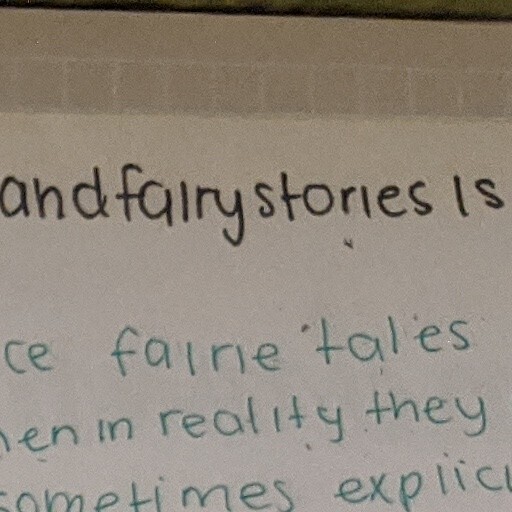 and fairy stories is
ce fairie tales
hen in reality they
sometimes explici